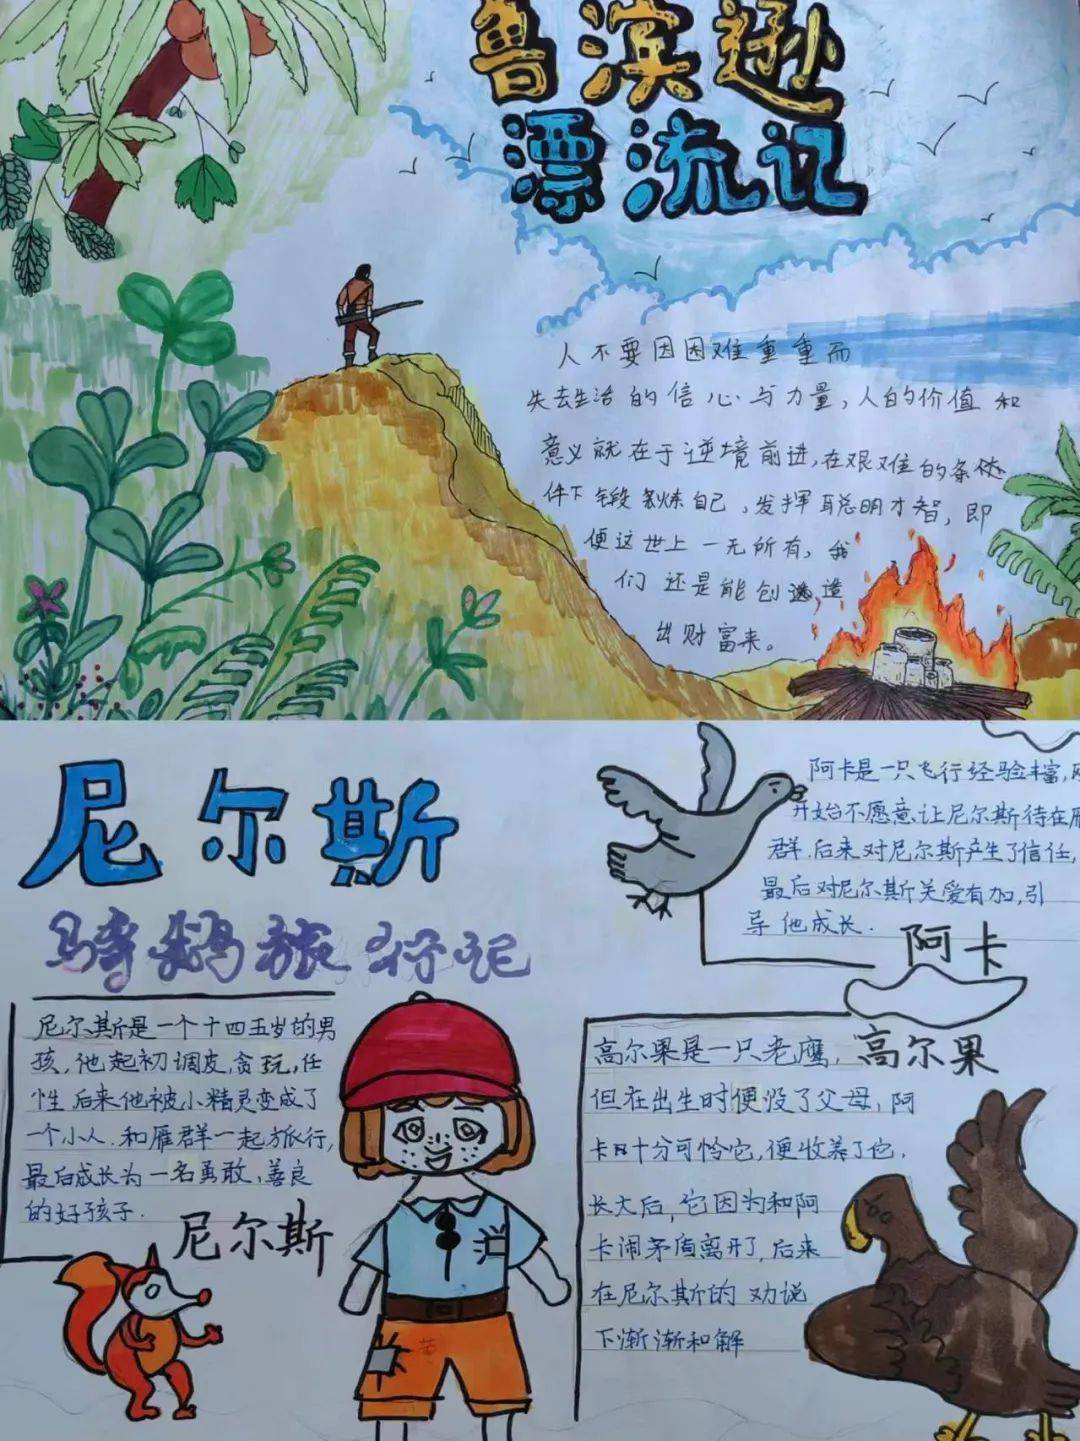 鲁滨逊
漂流记
人不要因困难重重而
失去生活的信心与力量,人的价值和
意义就在于逆境前进,在艰难的条
件下锻炼自己,发挥聪明才智,即
便这世上一无所有,我
们还是能创造
出财富来。
尼尔斯
骑鹅旅行记
阿卡是一只飞行经验丰富,
开始不愿意让尼尔斯待在雁
群.后来对尼尔斯产生了信任,
最后对尼尔斯关爱有加,引
导他成长.
阿卡
尼尔斯是一个十四五岁的男
孩,他起初调皮,贪玩,任
性.后来他被小精灵变成了
一个小人.和雁群一起旅行,
最后成长为一名勇敢,善良
的好孩子.
尼尔斯
高尔果是一只老鹰,
高尔果
但在出生时便没了父母,阿
卡十分可怜它,便收养了他.
长大后,它因为和阿
卡闹矛盾离开了,后来
在尼尔斯的劝说
下渐渐和解